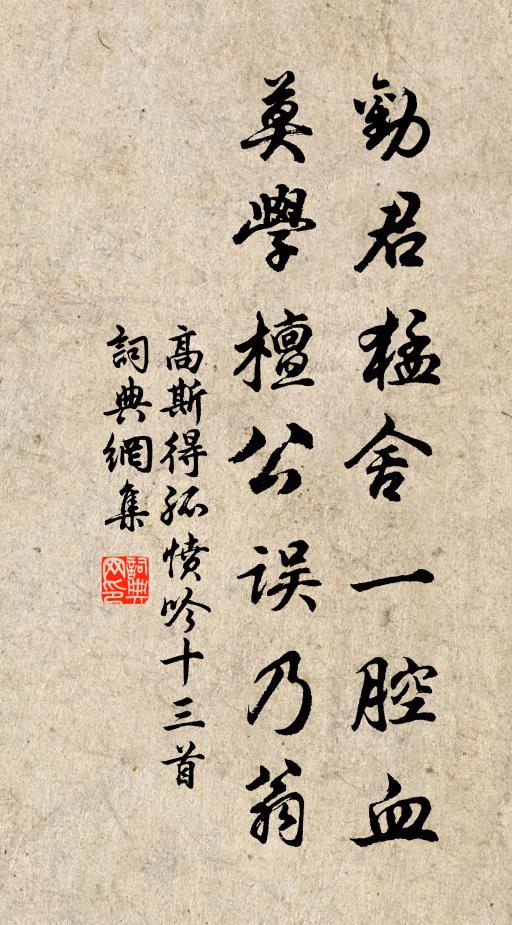 勸君猛舍一腔血
莫學檀公誤乃翁
高斯得孤憤吟十三首
詞典網集
詞典网印